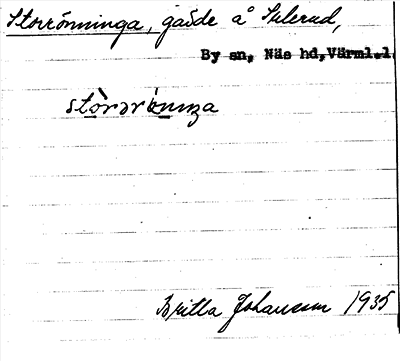 Storrönninga, gärde å Sulerud,
By sn, Näs hd, Värml.l.
stòrǝrö̀nɩŋa
Britta Johansson 1935